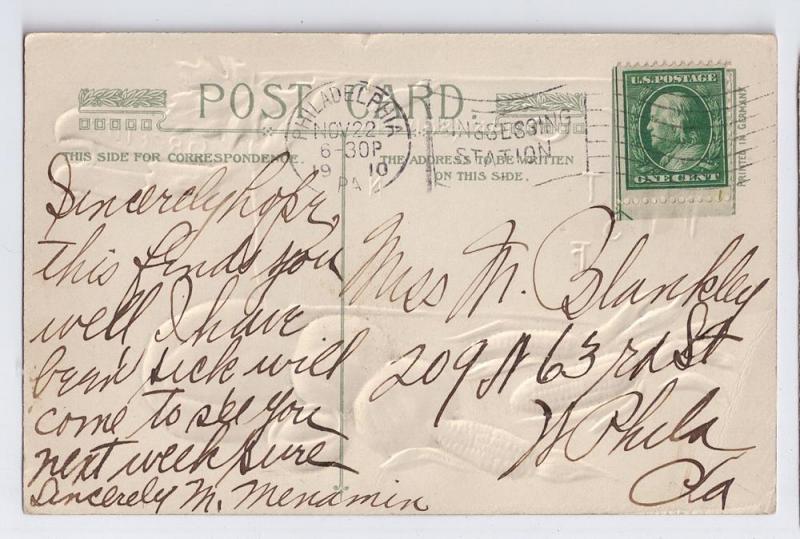 POST CARD.
THIS SIDE FOR CORRESPONDENCE.
THE ADDRESS TO BE WRITTEN
ON THIS SIDE.
PHILADELPHIA
NOV 22
6-30P
1910
PA
STATION
U.S.POSTAGE
ONE CENT
PRINTED IN GERMANY
Sincerely hope
this finds you
well I have
been sick will
come to see you
next week sure
Sincerely M. Menamin
Miss M. Blankley
209 N 63rd St
W Phila
Pa